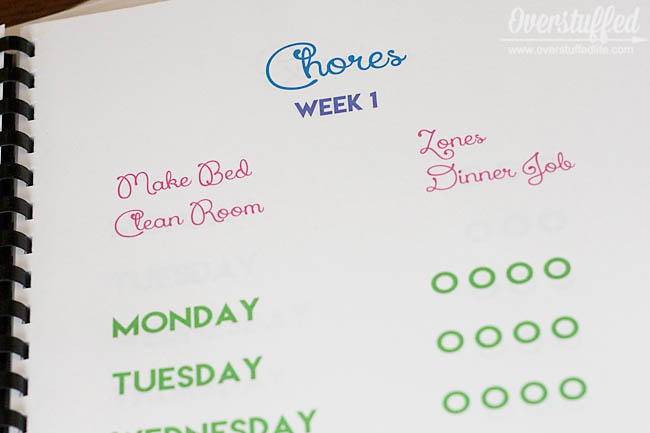 Overstuffed
www.overstuffedlife.com
Chores
WEEK 1
Make Bed
Clean Room
Zones
Dinner Job
MONDAY
TUESDAY
WEDNESDAY